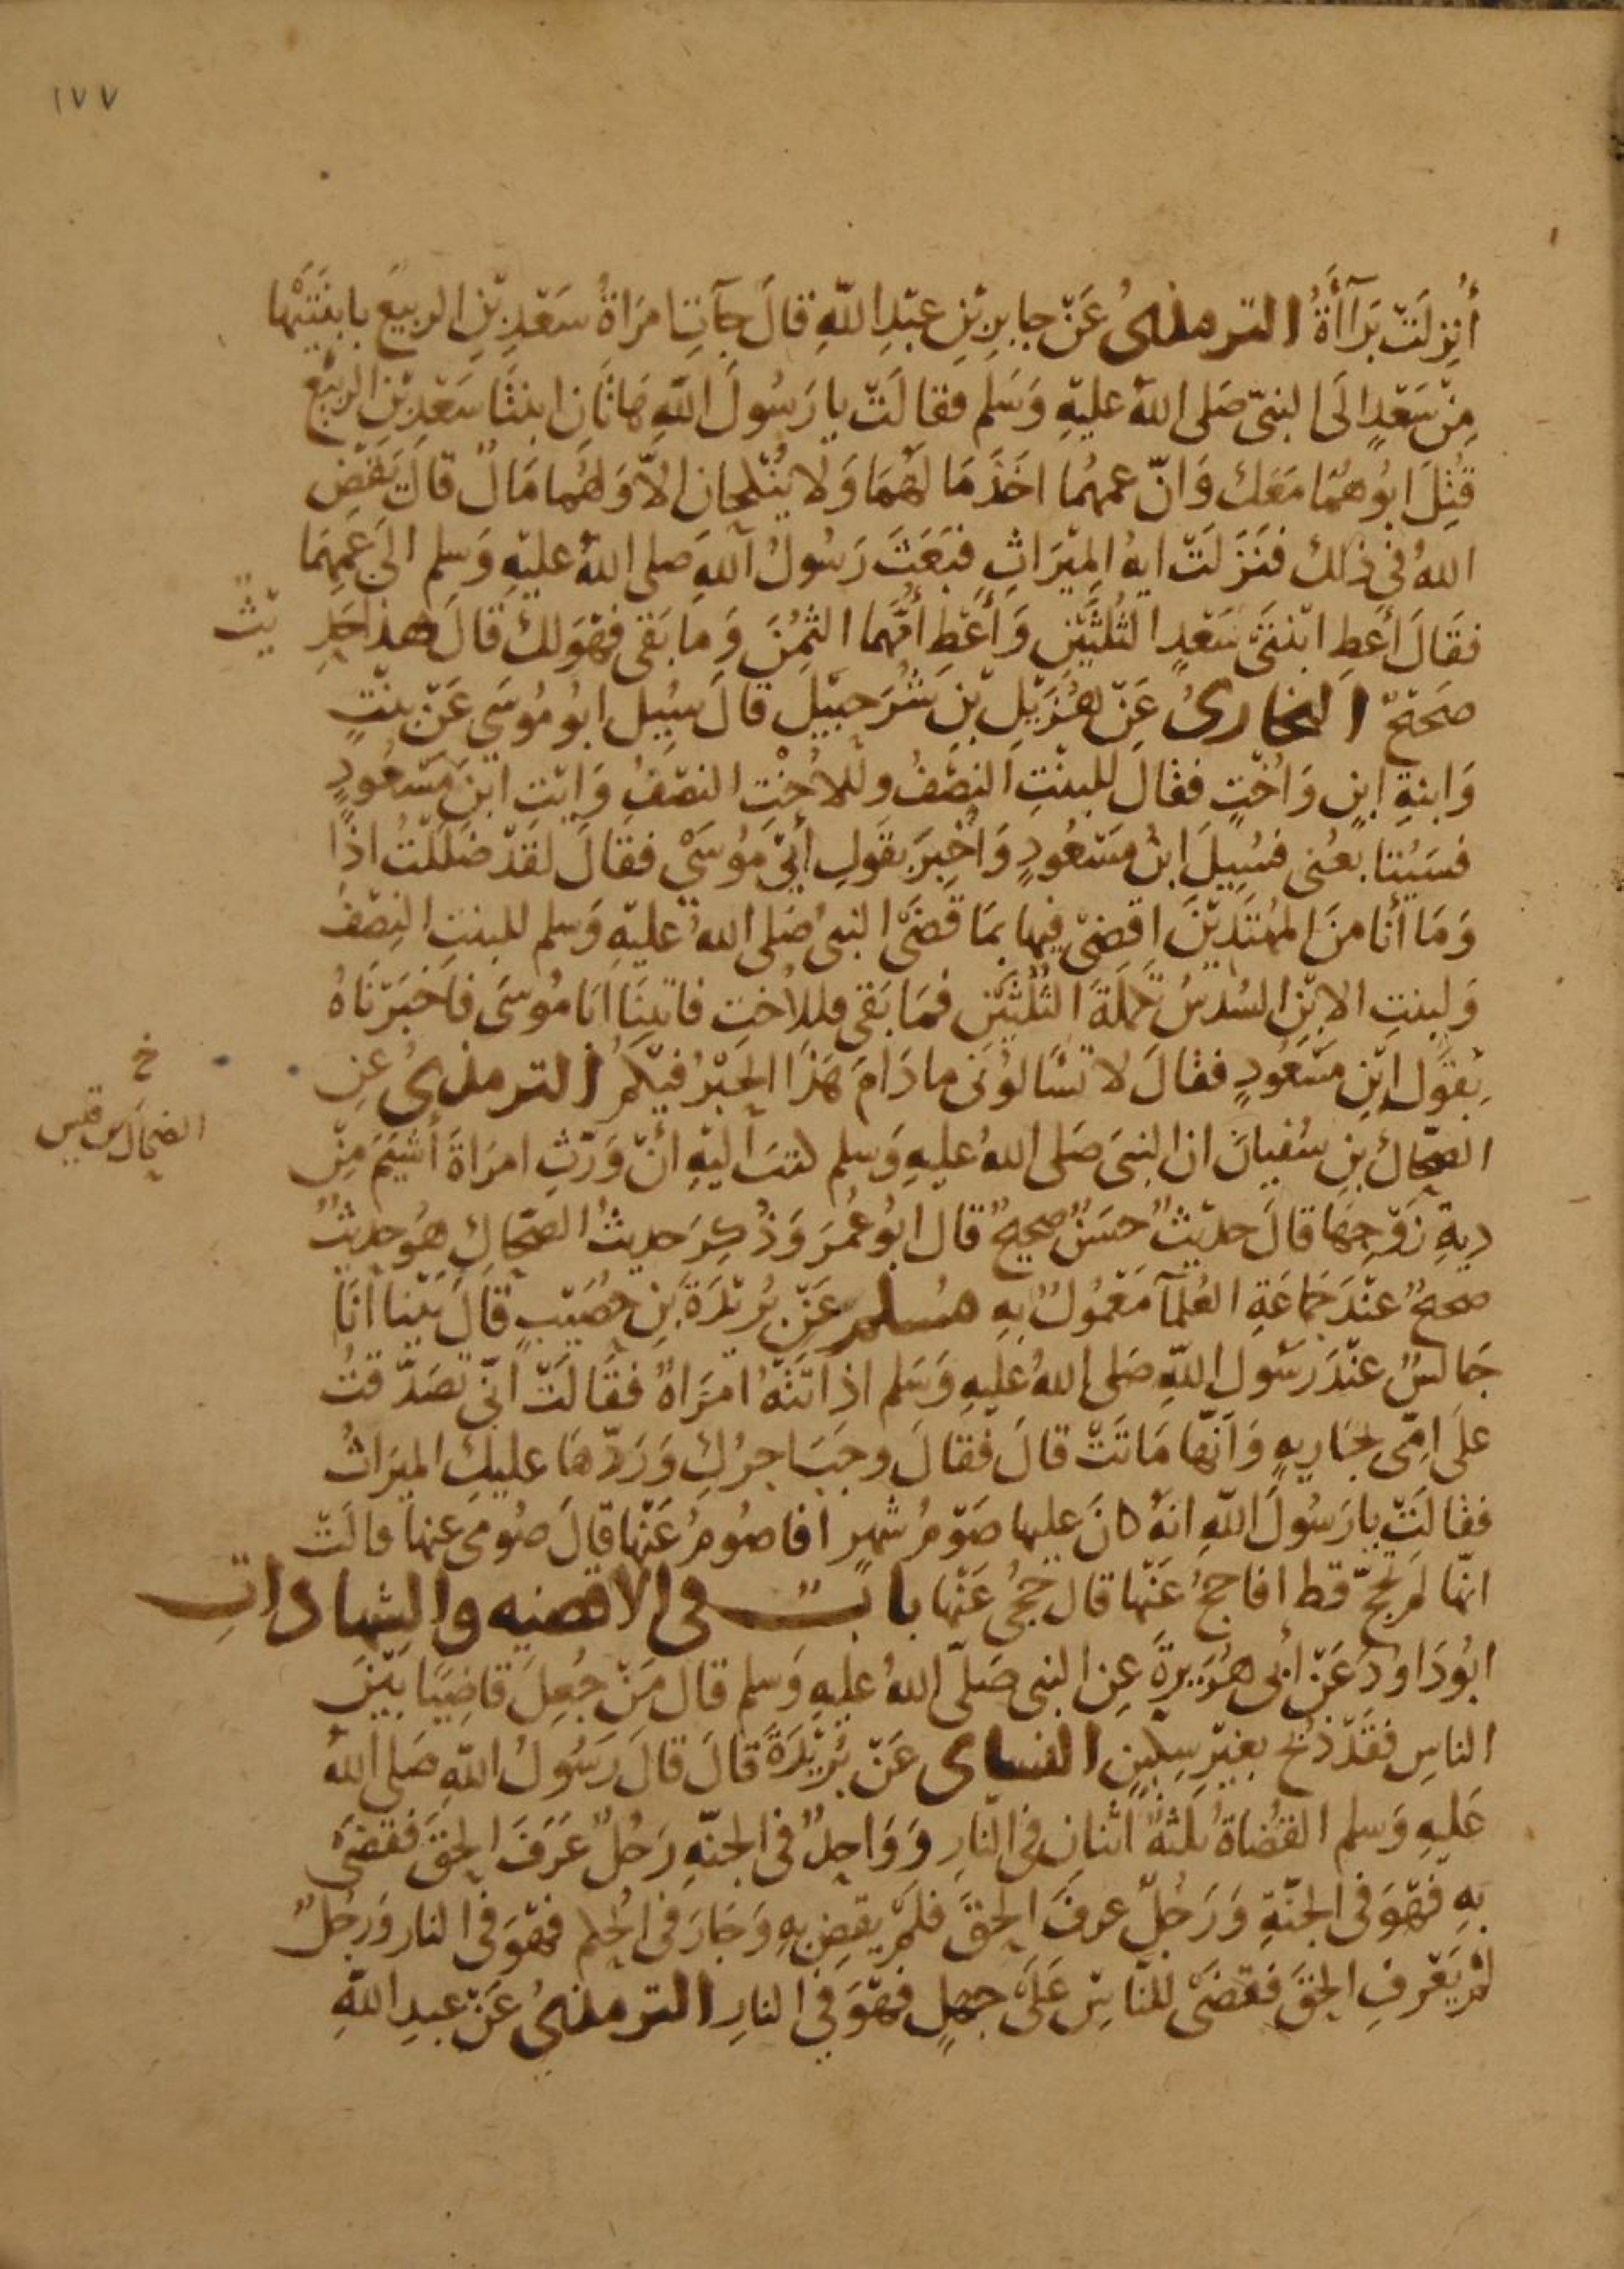 ١٧٧
أُنزِلَتْ بَرَآأَةُ الترمذىُ عَنْ جابِرِ بْنِ عبْدِ اللّهِ قالَ جآتِ امرَاةُ سَعْدِ بْنِ الربيعَ بابنَتَيْها
مِنْ سَعْدٍ الَى النبىّ صَلى اللهُ عليْهِ وَسَلم فقالَتْ يا رَسُولَ اللّهِ هَاتَانِ ابنتَا سَعْدِ بْنِ الربيْع
قُتِلَ ابُوهُمَا مَعَكَ وَانّ عمهُما اخَذَ مَالَهُمَا وَلَا يُنْكحانِ الاّ وَلهُما مَالٌ قالَ يَقْضِ
اللهُ فى ذلكَ فنَزَلَتْ ايهُ الميْرَاثِ فبَعَثَ رَسُولُ اللهِ صَلى اللهُ عليْهِ وَسلم الىَ عَمِهِمَا
فقَالَ أعطِ ابْنتَىْ سَعْدٍ الثُلثَيْنِ وَأَعْطِ أُمَّهُما الثمُنَ وَمَا بَقى فهْوَ لكَ قالَ هذا حَدِ يْثٌ
صَحيْحٌ البخارىُ عَنْ هُزَيْلِ بْنِ شُرَحبيْلِ قالَ سُيِل ابُو مُوسَى عَنْ بنْتٍ
وَابنةِ ابنٍ وَاُخْتٍ فقالَ للبنْتِ النصْفُ وللاُخْتِ النصْفُ وَايْتِ ابْنَ مَسْعُودٍ
فسَيُتابعُنى فسُيِلَ ابنُ مَسْعُودٍ وَاُخْبِرَ بقَولِ أبِى مُوسَىْ فقَالَ لقَدْ ضَلَلْتُ اذًا
وَمَا أنا منَ المهتَدِيْنَ اقضِىْ فيها بمَا قَضَى النبىُ صَلى اللهُ عليْهِ وَسلم للبنتِ النِصْفُ
وَلبنتِ الابْنِ السُدسُ تكملَةَ الثُلثَيْنِ فمَا بَقى فللاُختِ فاتيْنَا ابَا مُوسَى فاَخبَرْنَاهُ
بقَولِ ابْنِ مَسْعُودٍ فقالَ لَا تسْالوُنى ما دَامَ هَذَا الحَبْرُ فيْكمُ الترمذىُ عنِ
الضحّاك بنِ سُفيانَ ان النبىَ صَلى اللهُ عليهِ وَسلم كتبَ اليْهِ أنْ وَرّثِ امرَاةَ أشْيَمَ مِنْ
خ
الضحاك بن قيس
ديةِ زَوْجِهَا قالَ حديْثٌ حسَنٌ صحيحٌ قال ابُو عُمَرَ وَذُكِرَ حديثُ الضحّاكِ هُو حديثٌ
صحيحٌ عنْدَ جَمَاعَةِ العُلمآ مَعْمُولٌ بِه مُسلم عَنْ بُرَيْدَةَ بنِ حُصَيْبٍ قالَ بيْنا انَا
جَالسٌ عنْدَ رَسُولِ اللّهِ صَلى اللهُ عليْهِ وَسَلم اذ اتَتْهُ امرَاةٌ فقالَتْ انّى تَصَدّقتُ
علَى امّى بجَاريهٍ وَانّها مَاتَتْ قالَ فقالَ وجَبَ اجرُكِ وَرَدّهَا عليكِ الميرَاثُ
فقالَتْ يا رَسُولَ اللّهِ انهُ كانَ عليها صَوْمُ شهرٍ افاصُومُ عَنْها قالَ صُومى عنها قالَتْ
انّها لم تَحُجّ قط افاحُجُّ عَنْها قال حُجّى عَنْها بابٌ فى الاقضيه والشهاداتِ
ابُو دَاودَ عَنْ أبى هُرَيرةَ عنِ النبى صَلّى اللهُ عليهِ وَسلم قال مَنْ جُعِلَ قاضِيًا بيْنَ
الناسِ فقَدْ ذُبحَ بغيْرِ سِكينٍ النساى عَنْ بُرَيْدَةَ قالَ قالَ رَسُولُ اللّهِ صَلى اللهُ
عَليهِ وَسلم القضُاةُ ثلثةٌ اثنانِ فى النارِ وَوَاحِدٌ فى الجنّهِ رَجُلٌ عَرَفَ الحقَّ فقضَىَ
بهِ فهْوَ فى الجنّةِ وَرَجُلٌ عرفَ الحقَّ فلمْ يقضِ بِهِ وَجَارَ فى الحُكم فهْوَ فى النار وَرجُلٌ
لمْ يَعْرفِ الحقَ فقضَى للنّاسِ عَلَى جهلٍ فهْوَ فى النارِ الترمذىُ عَنْ عبدِ اللّهِ